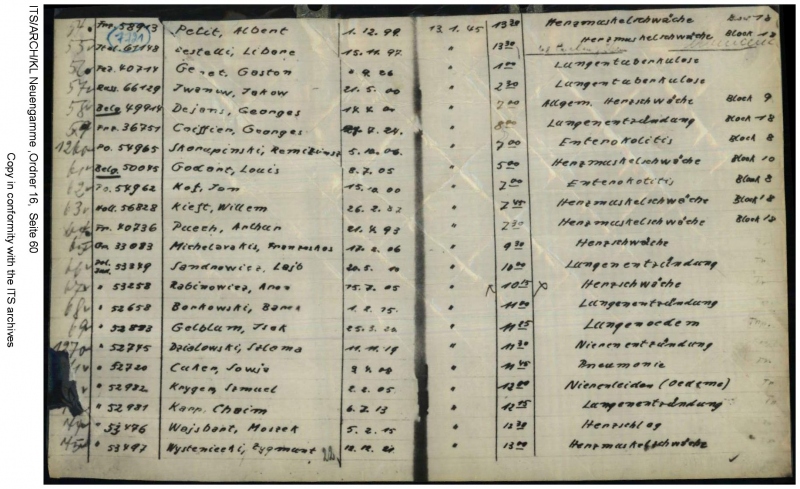 ITS/ARCH/KL Neuengamme ,Ordner 16, Seite 60
Copy in conformity with the ITS archives
54. Fr. 58913 Pelit, Albert 1. 12. 99. 13. 1. 45 13 20 Herzmuskelschwäche
(7221)
55. 61148 Libone 15. 11. 97. " 13 30 Herzmuskelschwäche Block 18
56. Fr. 40714 Gaston " 1 00 Lungentuberkulose
57. Russ. 66129 Iwanow, Jakow 21. 5. 00 " 2 30 Lungentuberkulose
58. Belg. 49914 Dejans, Georges 14. 4. 00 " Allgem. Herzschwäche Block 9
59. Fr. 36751 Coiffier, Georges 4. 24. " Lungenentzündung Block 18
Po. 54965 5. 12. 06. " 7 00 Enterokolitis Block 8
61 Belg. 50045 Godart, Louis 8. 7. 05 " 5 00 Herzmuskelschwäche Block 10
62 Po. 54962 Kos, Jan 15. 10. 00 " 7 00 Enterokolitis Block 8
63 Holl. 56828 Kieft, Willem 26. 2. " 7 45 Herzmuskelschwäche Block 18
64 Fr. 40736 Puech, Arthur 21. 4. 93 " 7 30 Herzmuskelschwäche Block 18
65 33083 Michelarakis, 17. 2. 06 " 9 30 Herzschwäche
66 Pol. Jud. 53249 Sandnowicz, Lajb 20. 5. 10 " 10 00 Lungenentzündung
67 " 53258 Rabinowicz, Aron 15. 7. 05 " 10 15 Herzschwäche
68 " 52658 Borkowski, 1. 2. 15. " 11 00 Lungenentzündung
69 " Gelblum, Isak 25. 5. " 11 25 Lungenoedem
1270 " 52775 Dzialowski, Szloma 11. 11. 19 " 11 30 Nierenentzündung
" 52720 Cuker, " 11 45 Pneumonie
" 52982 Krygen, Szmuel 2. 2. 05 " 12 00 Nierenleiden (Oedeme)
" 52981 Karp, Chaim 6. 7. 13 " 12 15 Lungenentzündung
" 53476 Wajsbort, Moszek 5. 2. 15 " 12 30 Herzschlag
" 53497 Wysteniecki, Zygmunt 12. 12. " 13 00 Herzmuskelschwäche